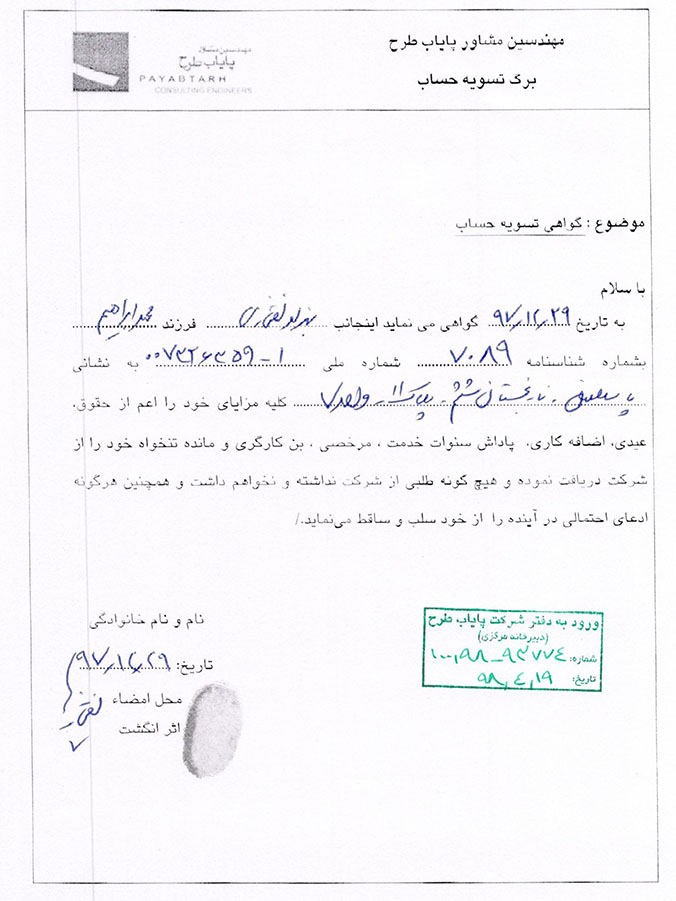 مهندسین مشاور پایاب طرح
برگ تسویه حساب
مهندسین مشاور
پایاب طرح
PAYABTARH
CONSULTING ENGINEERS
موضوع : گواهی تسویه حساب
با سلام
به تاریخ ۹۷/۱۲/۲۹ گواهی می نماید اینجانب فرزند محمدابراهیم
بشماره شناسنامه ۷۰۸۹ شماره ملی ۰۰۷۳۲۶۳۵۹-۱ به نشانی
پاسداران - نارنجستان ششم - پلاک ۱۱ - واحد ۷ کلیه مزایای خود را اعم از حقوق،
عیدی، اضافه کاری، پاداش سنوات خدمت ، مرخصی ، بن کارگری و مانده تنخواه خود را از
شرکت دریافت نموده و هیچ گونه طلبی از شرکت نداشته و نخواهم داشت و همچنین هرگونه
ادعای احتمالی در آینده را از خود سلب و ساقط می‌نماید./
نام و نام خانوادگی
تاریخ: ۹۷/۱۲/۲۹
محل امضاء
اثر انگشت
ورود به دفتر شرکت پایاب طرح
(دبیرخانه مرکزی)
شماره: ۱۰۰,۹۸-۹۳۷۷۴
تاریخ: ۹۸,۴,۱۹